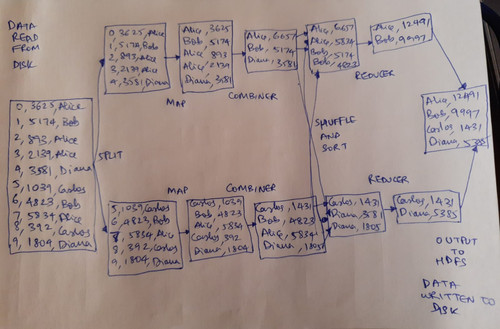 DATA
READ
FROM
DISK
0, 3625, Alice
1, 5174, Bob
2, 893, Alice
3, 2139, Alice
4, 3581, Diana
5, 1039, Carlos
6, 4823, Bob
7, 5834, Alice
8, 392, Carlos
9, 1804, Diana
SPLIT
0, 3625, Alice
1, 5174, Bob
2, 893, Alice
3, 2139, Alice
4, 3581, Diana
MAP
Alice, 3625
Bob, 5174
Alice, 893
Alice, 2139
Diana, 3581
COMBINER
Alice, 6657
Bob, 5174
Diana, 3581
Alice, 6657
Alice, 5834
Bob, 5174
Bob, 4823
REDUCER
Alice, 12491
Bob, 9997
SHUFFLE
AND
SORT
5, 1039, Carlos
6, 4823, Bob
7, 5834, Alice
8, 392, Carlos
9, 1804, Diana
MAP
Carlos, 1039
Bob, 4823
Alice, 5834
Carlos, 392
Diana, 1804
COMBINER
Carlos, 1431
Bob, 4823
Alice, 5834
Diana, 1805
Carlos, 1431
Diana, 3581
Diana, 1805
REDUCER
Carlos, 1431
Diana, 5385
Alice, 12491
Bob, 9997
Carlos, 1431
Diana, 5385
OUTPUT
TO
HDFS
DATA
WRITTEN TO
DISK